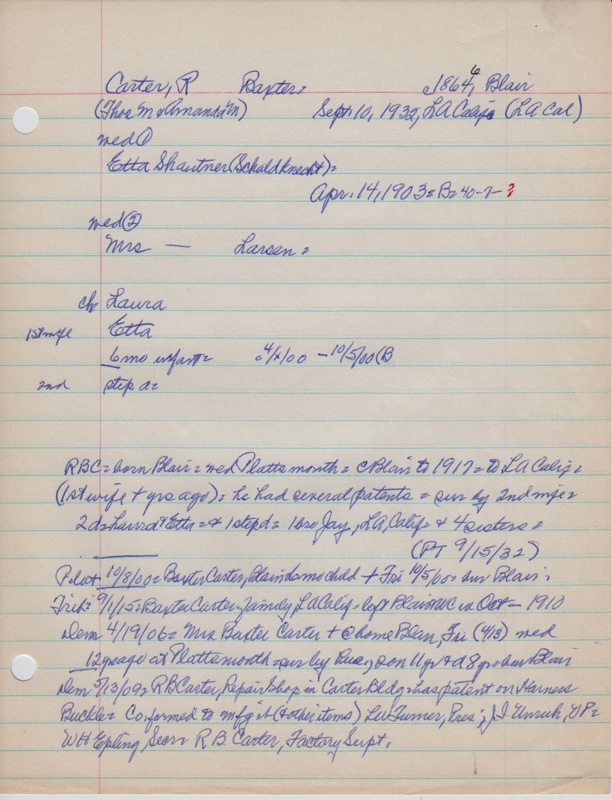 Carter, R Baxter= c1864,6 Blair
(Thos M & Amanda M) Sept. 10, 1932, LA Calif= (LA Cal)
med ①
Etta Shautner (Schuldknecht)=
Apr. 14, 1903= B= 40-7- ?
med ②
Mrs — Larsen=
ch Laura
1st wife Etta
6 mo infant= 4/x/00 - 10/5/00 (B
2nd step d=
RBC= born Blair= med Plattsmouth= c Blair to 1917= to LA Calif=
(1st wife + yrs ago)= he had several patents= sur by 2nd wife=
2 d= Laura & Etta= & 1 step d= 1 bro Jay, LA, Calif= & 4 sisters=
(PT 9/15/32)
Pilot 10/8/00= Baxter Carter, Blair 6 mo child + Fri 10/5/00= bur Blair=
Trib= 9/1/15= Baxter Carter family, LA Calif= left Blair in Oct= 1910
Dem 4/19/06= Mrs Baxter Carter + @ home Blair, Fri (4/13) med
12 yrs ago at Plattsmouth= sur by son 11 yr & d 8 yr= bur Blair
Dem 5/13/09= RB Carter, Repair Shop in Carter Bldg= has patent on Harness
Buckle= Co. formed to mfg it (& other items) LW Turner, Pres; J I Unruh, VP=
WH Epling, Secr= R B Carter, Factory Supt.